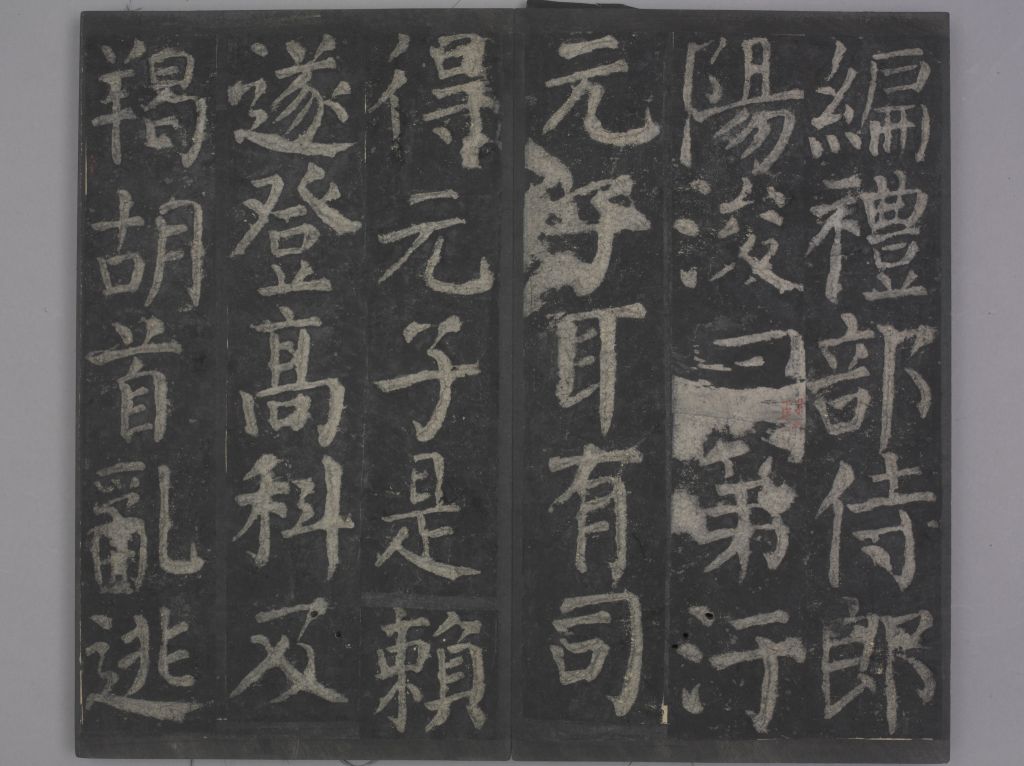 編禮部侍郎
陽浚第汙
元子耳有司
得元子是賴
遂登高科及
羯胡首亂逃